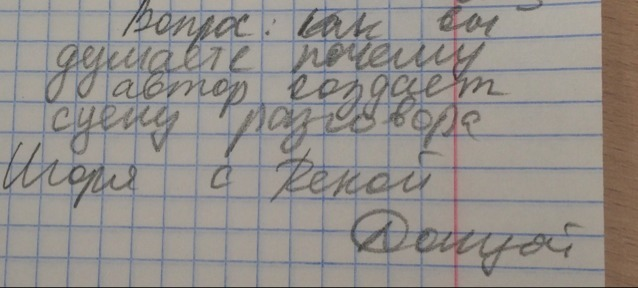 Вопрос: как вы
думаете почему
автор создает
сцену разговора
Игоря с Рекой
Донцом